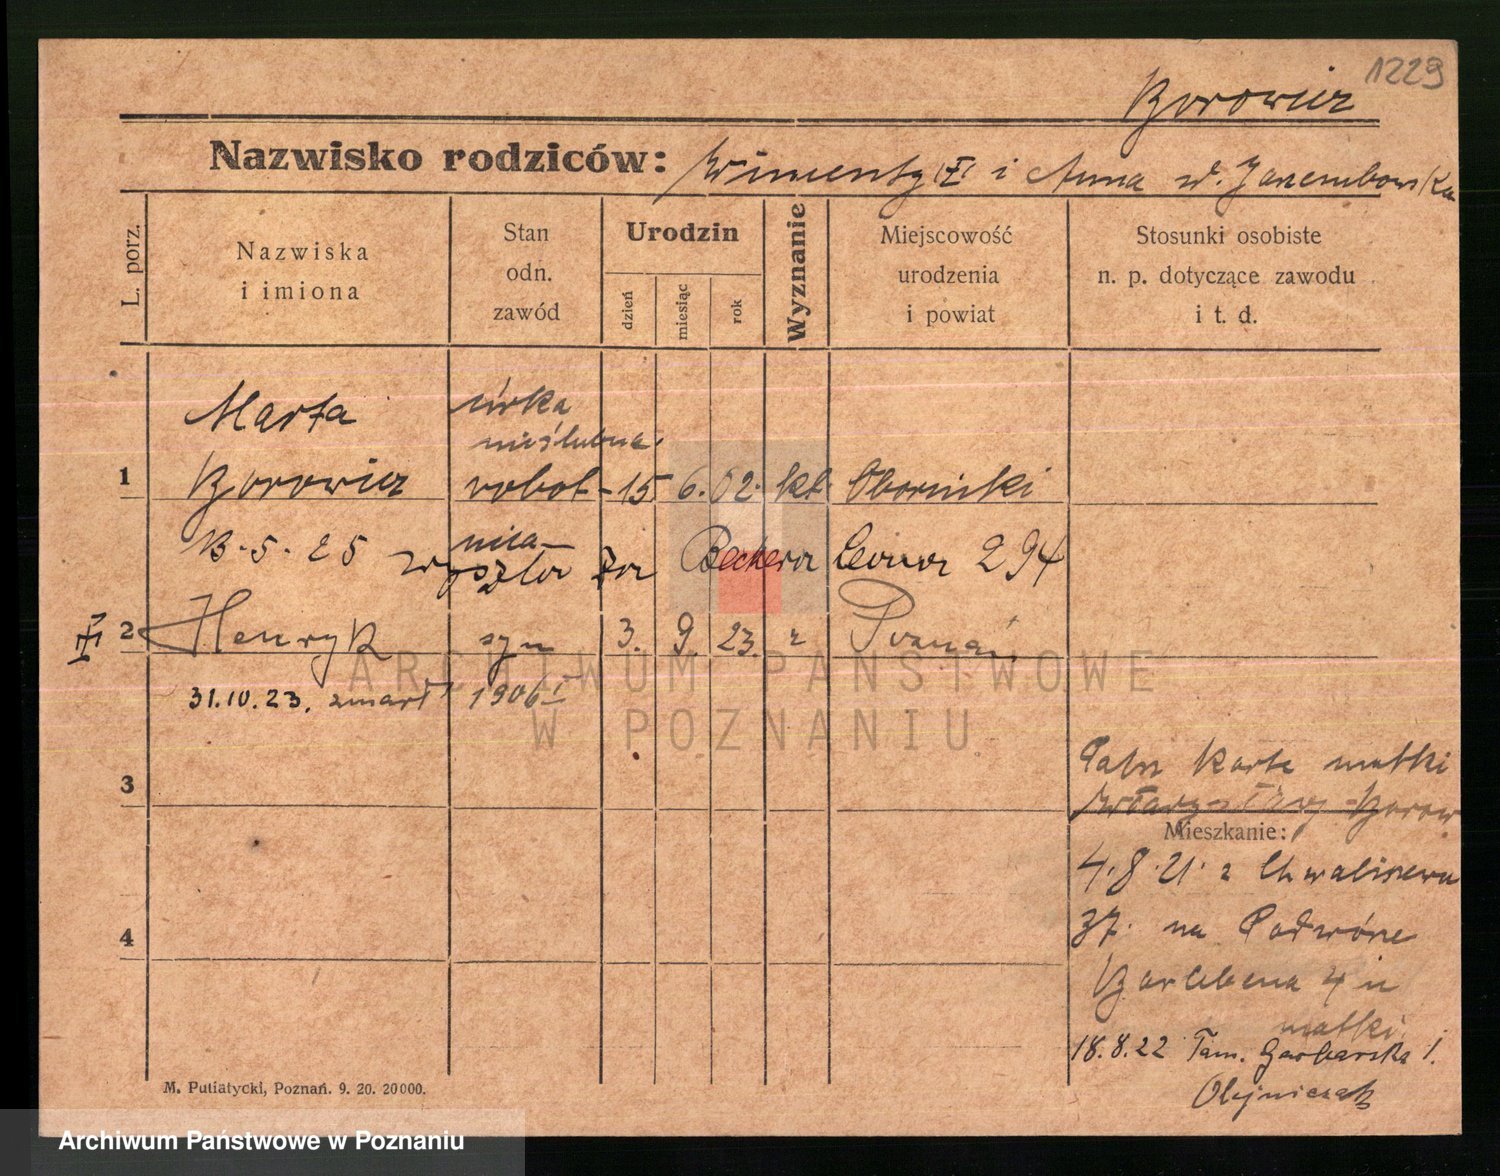 1229
Borowicz
Nazwisko rodziców: Wincenty i Anna z d. Jarzembowska
L. porz.
Nazwiska
i imiona
Stan
odn.
zawód
Urodzin
dzień
miesiąc
rok
Wyznanie
Miejscowość
urodzenia
i powiat
Stosunki osobiste
n. p. dotyczące zawodu
i t. d.
1
Marta
Borowicz
córka
nieślubna
robot-
nica
15 6. 02. kt. Oborniki
13.5.25 wyszła za Beckera Leona 294
2 Henryk syn 3. 9. 23. r Poznań
31.10.23. zmarł 1906
3
Patrz karta matki
4
Mieszkanie:
4.8.21. z Chwaliszewa
37. na Podwórze
Barlebena 4 u
matki
18.8.22 Tam. Garbarska 1.
Olejniczak
M. Putiatycki, Poznań. 9. 20. 20000.
ARCHIWUM PAŃSTWOWE
W POZNANIU
Archiwum Państwowe w Poznaniu